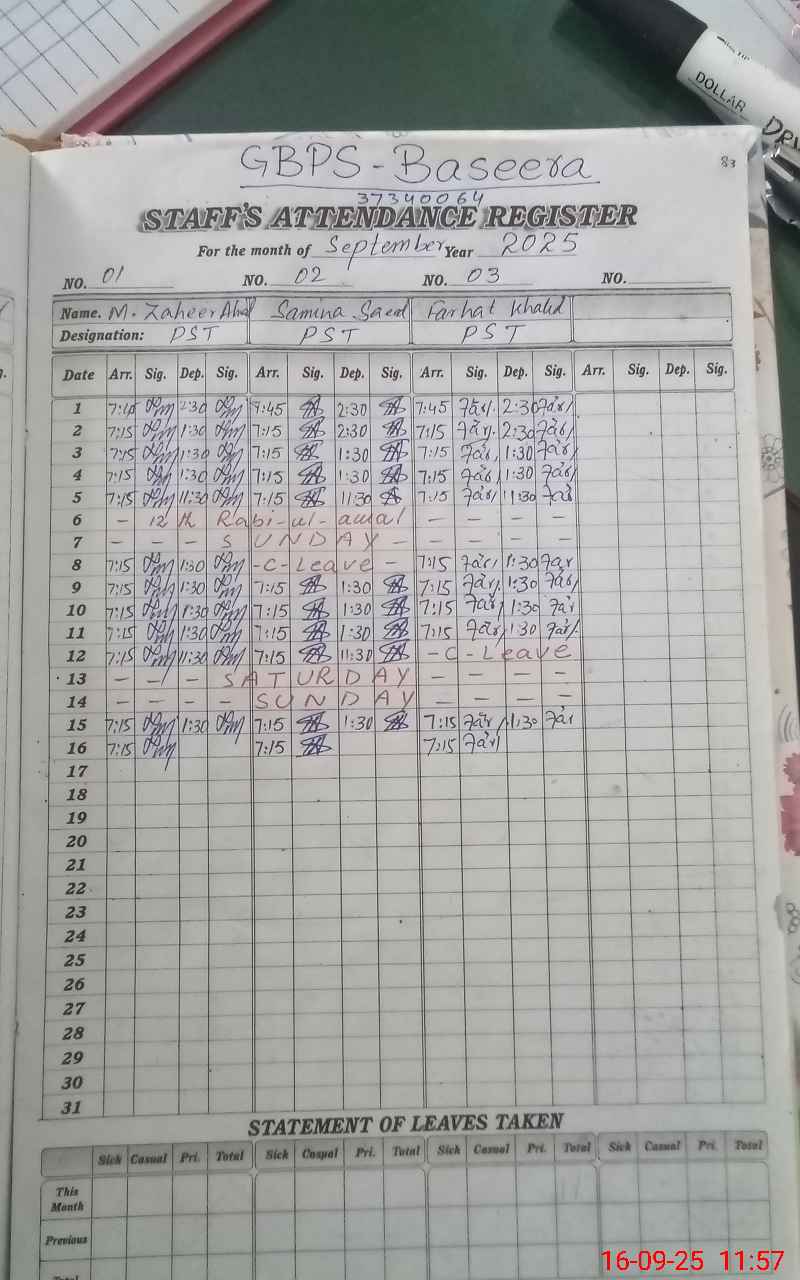 DOLLAR
83
GBPS - Baseera
37340064
STAFF'S ATTENDANCE REGISTER
For the month of September Year 2025
NO. 01 NO. 02 NO. 03 NO.
Name. M. Zaheer Samina Saeed Farhat Khalid
Designation: PST PST PST
Date Arr. Sig. Dep. Sig. Arr. Sig. Dep. Sig. Arr. Sig. Dep. Sig. Arr. Sig. Dep. Sig.
1 2:30 2:30 7:45 2:30
2 7:15 1:30 7:15 2:30 7:15 2:30
3 7:15 1:30 7:15 1:30 7:15 1:30
4 7:15 1:30 7:15 1:30 7:15 1:30
5 7:15 11:30 7:15 11:30 7:15 11:30
6 - 12th Rabi-ul-awal - - - -
7 - - - SUNDAY - - - - -
8 7:15 1:30 - C - Leave - 7:15 1:30
9 7:15 1:30 7:15 1:30 7:15 1:30
10 7:15 1:30 7:15 1:30 7:15 1:30
11 7:15 1:30 7:15 1:30 7:15 1:30
12 7:15 11:30 7:15 11:30 - C - Leave
13 - - - SATURDAY - - - -
14 - - - - SUNDAY - - - -
15 7:15 1:30 7:15 1:30 7:15 1:30
16 7:15 7:15 7:15
17
18
19
20
21
22
23
24
25
26
27
28
29
30
31
STATEMENT OF LEAVES TAKEN
Sick Casual Pri. Total Sick Casual Pri. Total Sick Casual Pri. Total Sick Casual Pri. Total
This
Month
Previous
Total
16-09-25 11:57